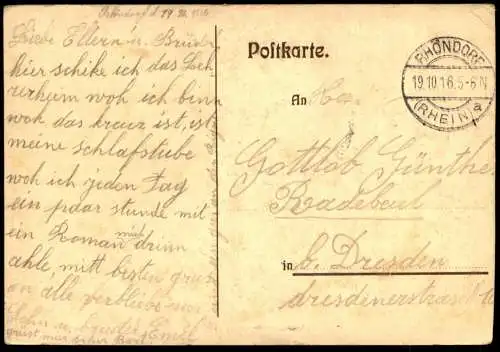 Rhöndorf d 19. 10. 1916
Liebe Eltern u. Brüder
hier schike ich das Leh
rerheim woh ich binn
woh das kreuz ist, ist
meine schlafstube
woh ich jeden Tag
ein paar stunde mit
ein Roman mich drinn
ahle, mitt besten grus
an alle verbleibe
Sohn u. bruder Emil
Postkarte.
RHÖNDORF
19.10.16.5-6N
(RHEIN) a
An
Gottlob Günther
Radebeul
in b. Dresden
dresdenerstrase